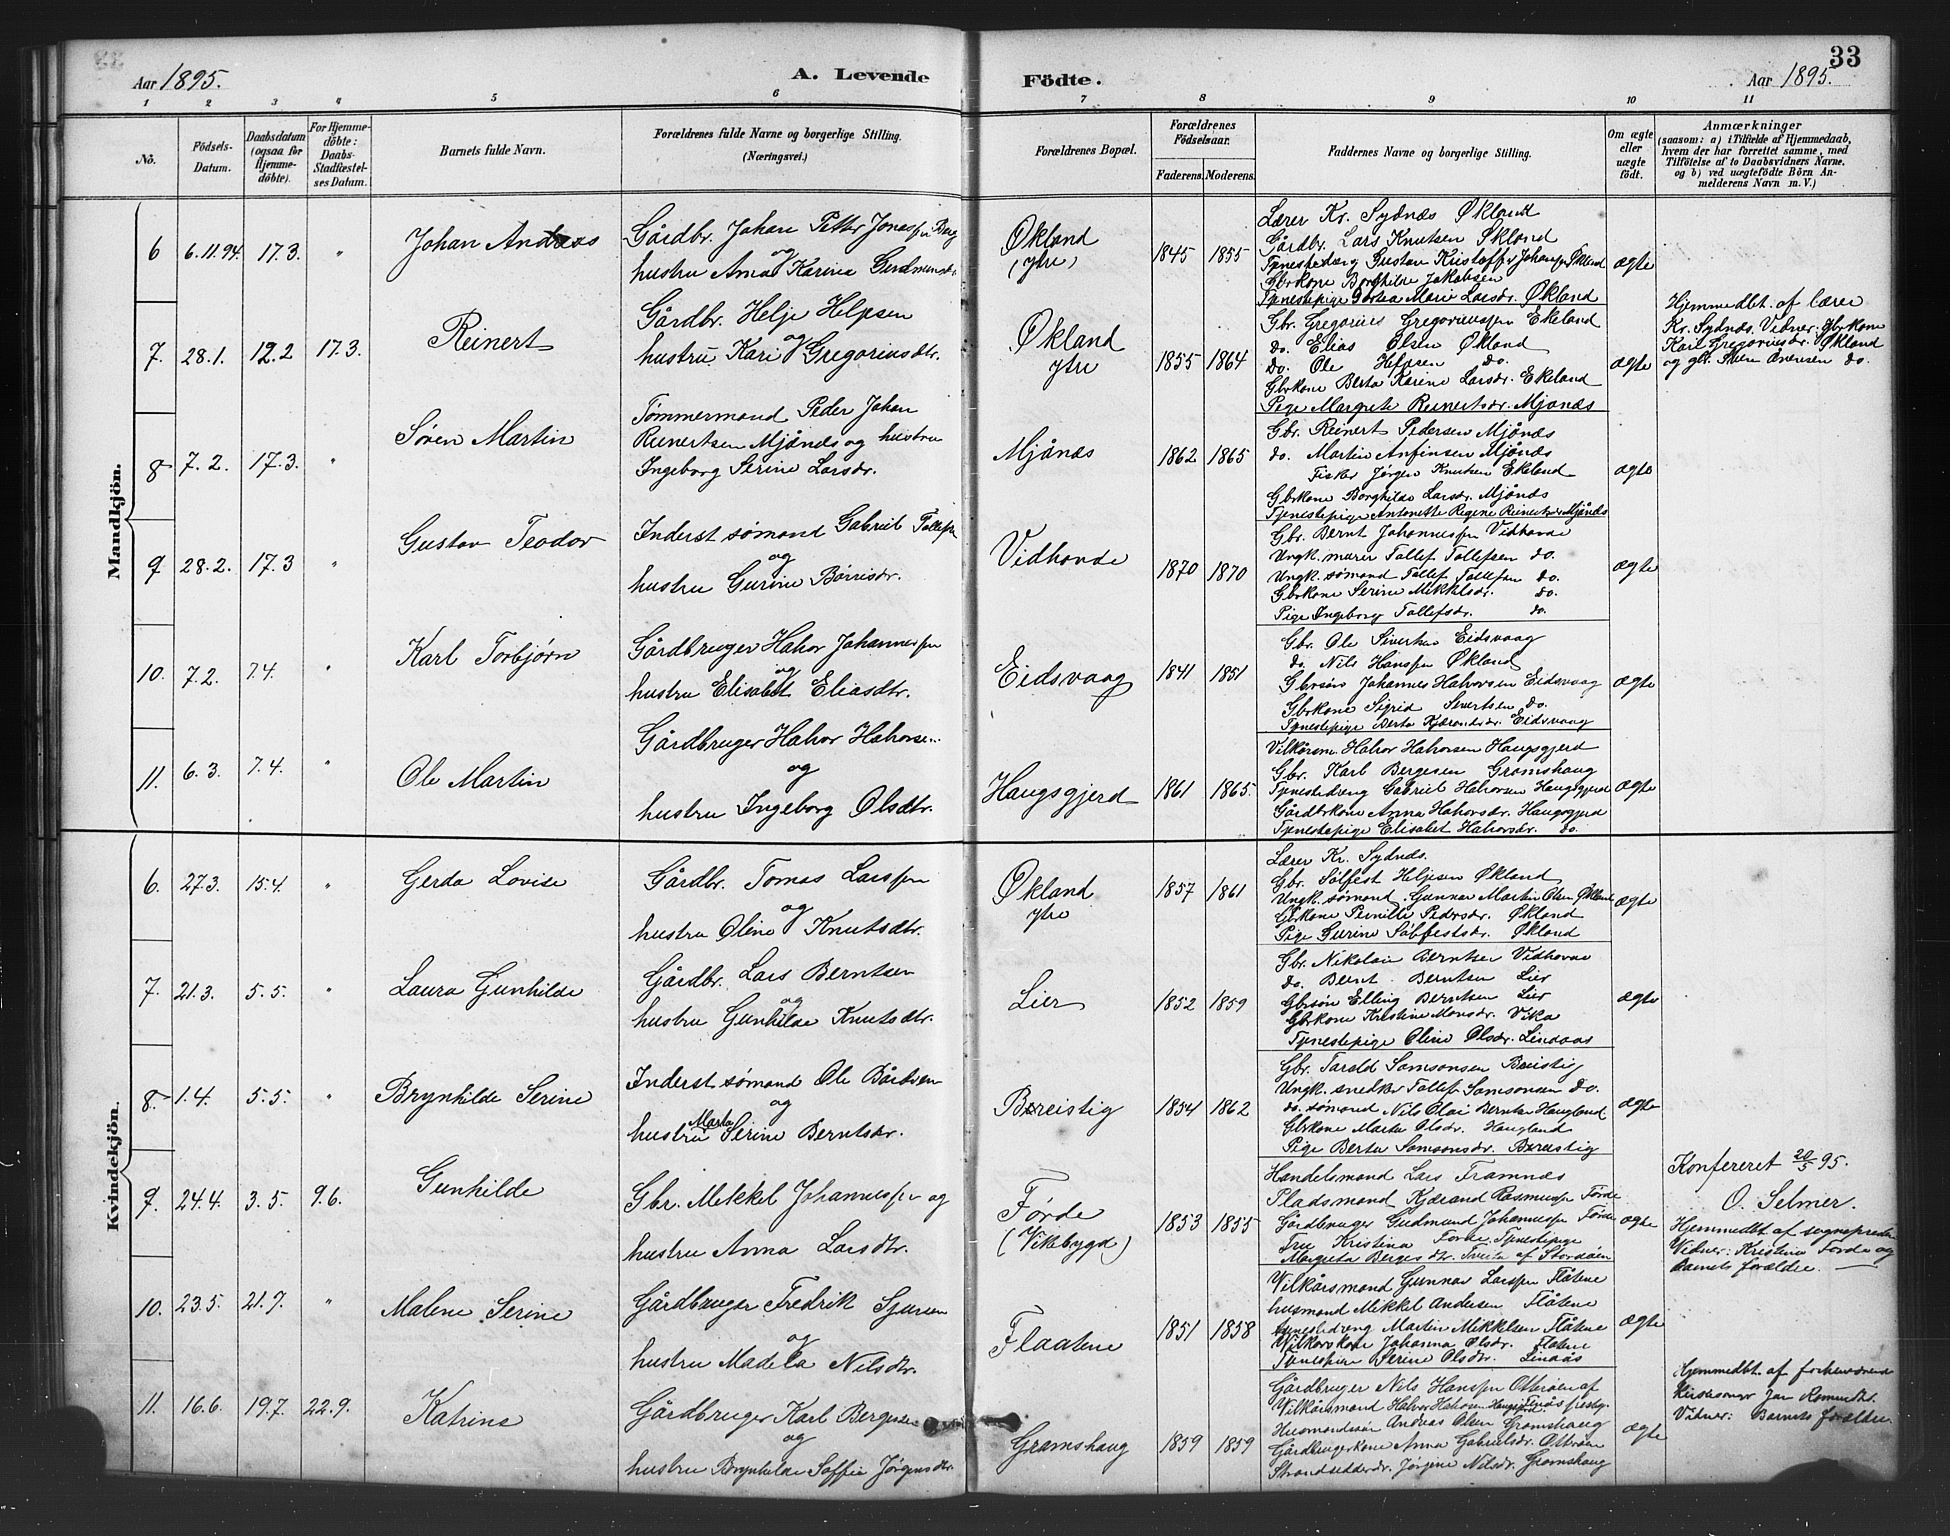 Aar 1895. A. Levende Födte. Aar 1895. 33
1 2 3 4 5 6 7 8 9 10 11
No.
Födsels-Datum.
Daabsdatum (ogsaa for Hjemmedöbte).
For Hjemmedöbte: Daabs-Stadfæstelses Datum.
Barnets fulde Navn.
Forældrenes fulde Navne og borgerlige Stilling. (Næringsvei.)
Forældrenes Bopæl.
Forældrenes Födselsaar. Faderens. Moderens.
Faddernes Navne og borgerlige Stilling.
Om ægte eller uægte födt.
Anmærkninger
(saasom: a) i Tilfælde af Hjemmedaab, hvem der har forrettet samme, med Tilföielse af to Daabsvidners Navne, og b) ved uægtefödte Börn Anmelderens Navn m. V.)
Mandkjön.
6 6.11.94. 17.3. " Johan Andreas
Gårdbr. Johan Petter Jonassen Berg
og
hustru Anna Karina Gudmundsdr.
Økland
(ytre)
1845 1855
Lærer Kr. Sydnæs Økland
Gårdbr. Lars Knutsen Økland
Tjenestedreng Gustav Kristoffer Johansen Økland
Gbrkone Borghilde Jakobsen
Tjenestepige Dortea Marie Larsdr. Økland
ægte
7. 28.1. 12.2 17.3. Reinert
Gårdbr. Helje Heljesen
og
hustru Kari Gregoriusdtr.
Økland
ytre
1855 1864
Gbr. Gregorius Gregoriussen Ekeland
do. Elias Olsen Økland
do. Ole Heljesen do.
Gbrkone Berta Karine Larsdr. Ekeland
Pige Margrete Reinertsdr. Mjånæs
ægte
Hjemmedbt. af lærer
Kr. Sydnæs. Vidner: Gbrkone
Kari Gregoriusdr. Økland
og gbr. Sven Svensen do.
8 7.2. 17.3. " Søren Martin
Tømmermand Peder Johan
Reinertsen Mjånæs og hustru
Ingeborg Serine Larsdr.
Mjånæs
1862 1865
Gbr. Reinert Pedersen Mjånæs
do. Martin Anfinsen Mjånæs
Fisker Jørgen Knutsen Ekeland
Gbrkone Borghilde Larsdr. Mjånæs
Tjenestepige Antonette Regine Reinertsdr. Mjånæs
ægte
9 28.2. 17.3 " Gustav Teodor
Inderst sømand Gabriel Tollefsen
og
hustru Gurine Børrisdr.
Vidhovde
1870 1870
Gbr. Bernt Johannessen Vidhovde
Ungk. murer Tollef Tollefsen do.
Ungk. sømand Tollef Tollefsen do.
Gbrkone Serine Mikkelsdr. do.
Pige Ingeborg Tollefsdr. do.
ægte
10. 7.2. 7.4. " Karl Torbjørn
Gårdbruger Halvor Johannessen
og
hustru Elisabet Eliasdtr.
Eidsvaag
1841 1851
Gbr. Ole Sivertsen Eidsvaag
do. Nils Hansen Økland
Gbrsøn Johannes Halvorsen Eidsvaag
Gbrkone Sigrid Sivertsen do.
Tjenestepige Berta Kjærandsdr. Eidsvaag
ægte
11. 6.3. 7.4. " Ole Martin
Gårdbruger Halvor Halvorsen
og
hustru Ingeborg Olsdtr.
Haugsgjerd
1861 1865.
Vilkårsm. Halvor Halvorsen Haugsgjerd
Gbr. Karl Bergesen Gromshaug
Tjenestedreng Gabriel Halvorsen Haugsgjerd
Gårdbrkone Anna Halvorsdr. Haugsgjerd
Tjenestepige Elisabet Halvorsdr. do.
ægte
Kvindekjön.
6. 27.3. 15.4. " Gerda Lovise
Gårdbr. Tomas Larssen
og
hustru Oline Knutsdtr.
Økland
ytre
1857 1861
Lærer Kr. Sydnæs.
Gbr. Sølfest Heljesen Økland
Ungk. sømand Gunnar Martin Olsen Økland
Gbrkone Pernille Pedersdr. Økland
Pige Gurine Sølfestsdr. Økland
ægte
7. 21.3. 5.5. " Laura Gunhilde
Gårdbr. Lars Berntsen
og
hustru Gunhilde Knutsdtr.
Lier
1852 1859
Gbr. Nikolai Berntsen Vidhovde
do. Bernt Berntsen Lier
Gbrsøn Elling Berntsen Lier
Gbrkone Kristine Monsdr. Vika
Tjenestepige Oline Olsdr. Lindaas
ægte
8. 1.4. 5.5. " Brynhilde Serine
Inderst sømand Ole Bårdsen
og
hustru Marta Serine Berntsdr.
Breistig
1854 1862
Gbr. Tarald Samsonsen Breistig
Ungk. snedker Tollef Samsonsen do.
do. sømand Nils Olai Berntsen Haugland
Gbrkone Marta Olsdr. Haugland
Pige Berta Samsonsdr. Breistig
ægte
9. 24.4. 3.5. 9.6. Gunhilde
Gbr. Mikkel Johannessen og
hustru Anna Larsdtr.
Førde
(Vikebygd)
1853 1855
Handelsmand Lars Framnæs
Pladsmand Kjærand Rasmussen Førde
Gårdbruger Gudmund Johannessen Førde
Fru Kristina Førde. Tjenestepige
Margreta Bergesdtr. Tveita af Stordøen
ægte
Konfereret 20/5 95.
O. Selmer.
Hjemmedbt. af sognepresten
Vidner: Kristina Førde og
Barnets forældre.
10. 23.5. 21.7. " Malene Serine
Gårdbruger Fredrik Sjursen
og
hustru Madela Nilsdtr.
Flaatene
1851 1858
Vilkårsmand Gunnar Larssen Flåtene
husmand Mikkel Andersen Flåtene
tjenestedreng Martin Mikkelsen Flåtene
Vilkårskone Johanna Olsdr. Flåtene
Tjenestepige Serine Olsdr. Lindås
ægte
11. 16.6. 19.7. 22.9. Katrine
Gårdbruger Karl Bergesen
og
hustru Brynhilde Soffie Jørgensdtr.
Gromshaug
1859 1859
Gårdbruger Nils Hanssen Otterøen af
Vilkårsmand Halvor Halvorsen Haugsgjerd
Husmandssøn Andreas Olsen Gromshaug
Gårdbrugerkone Anna Gabrielsdr. Otterøen
Strandsidderdr. Jørgine Nilsdr. Gromshaug
ægte
Hjemmedbt. af forhenværende
kirkesanger Jan Remmedtt.
Vidner: Barnets forældre.